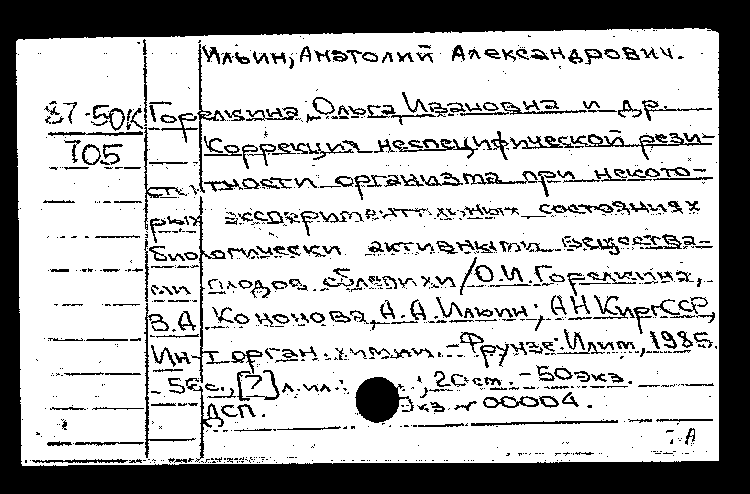 Ильин, Анатолий Александрович.
87-50К Горелкина, Ольга Ивановна и др.
Т05 Коррекция неспецифической рези-
стентности организма при некото-
рых экспериментальных состояниях
биологически активными вещества-
ми плодов облепихи / О.И. Горелкина,
В.А Кононова, А.А. Ильин; АН КиргССР,
Ин-т орган. химии. - Фрунзе: Илим, 1985.
- 56с., [7] л. ил.: ; 20 см. - 50 экз.
ДСП. Экз. № 00004.